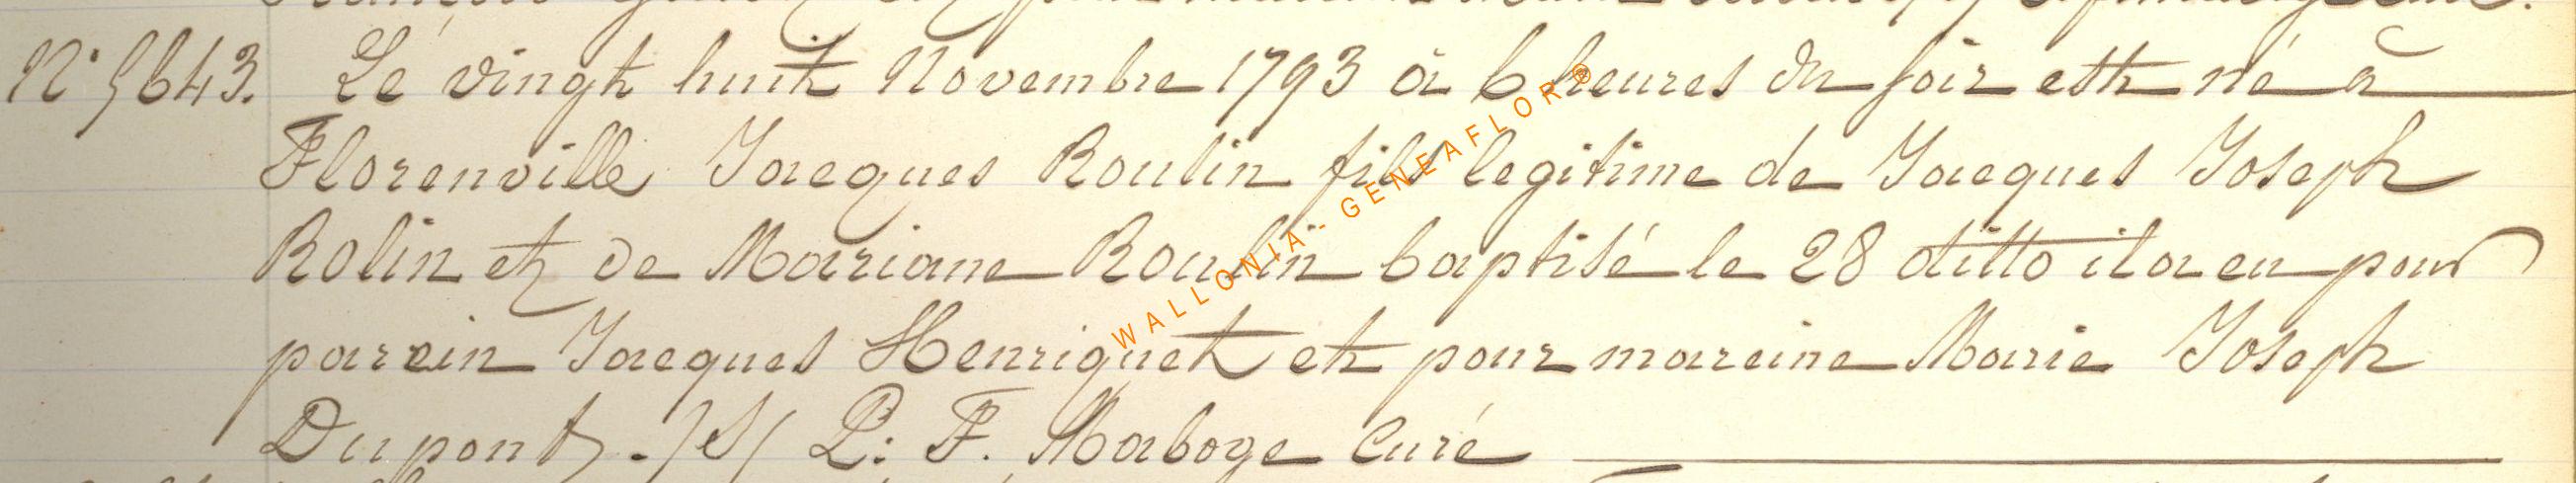 N° 5643. Le vingt huit Novembre 1793 à 6 heures du soir est né à
Florenville Jacques Roulin fils legitime de Jacques Joseph
Rolin et de Mariane Roulin baptisé le 28 ditto il a eu pour
parein Jacques Henriquet et pour mareine Marie Joseph
Dupont. /S/ P: F. Maboge Curé
WALLONIA-GENEAFLOR©